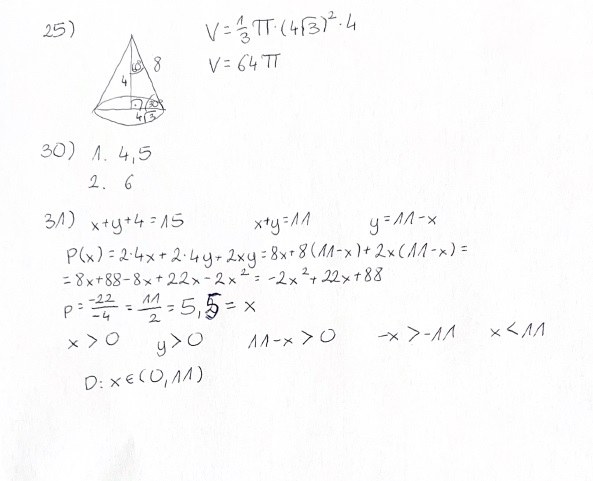 25)
V = 1/3 π · (4√3)² · 4
V = 64 π
4 60° 8
30°
4√3
30) 1. 4,5
2. 6
31) x+y+4 = 15 x+y = 11 y = 11-x
P(x) = 2·4x + 2·4y + 2xy = 8x + 8(11-x) + 2x(11-x) =
= 8x + 88 - 8x + 22x - 2x² = -2x² + 22x + 88
p = -22/-4 = 11/2 = 5,5 = x
x > 0 y > 0 11-x > 0 -x > -11 x < 11
D: x ∈ (0, 11)